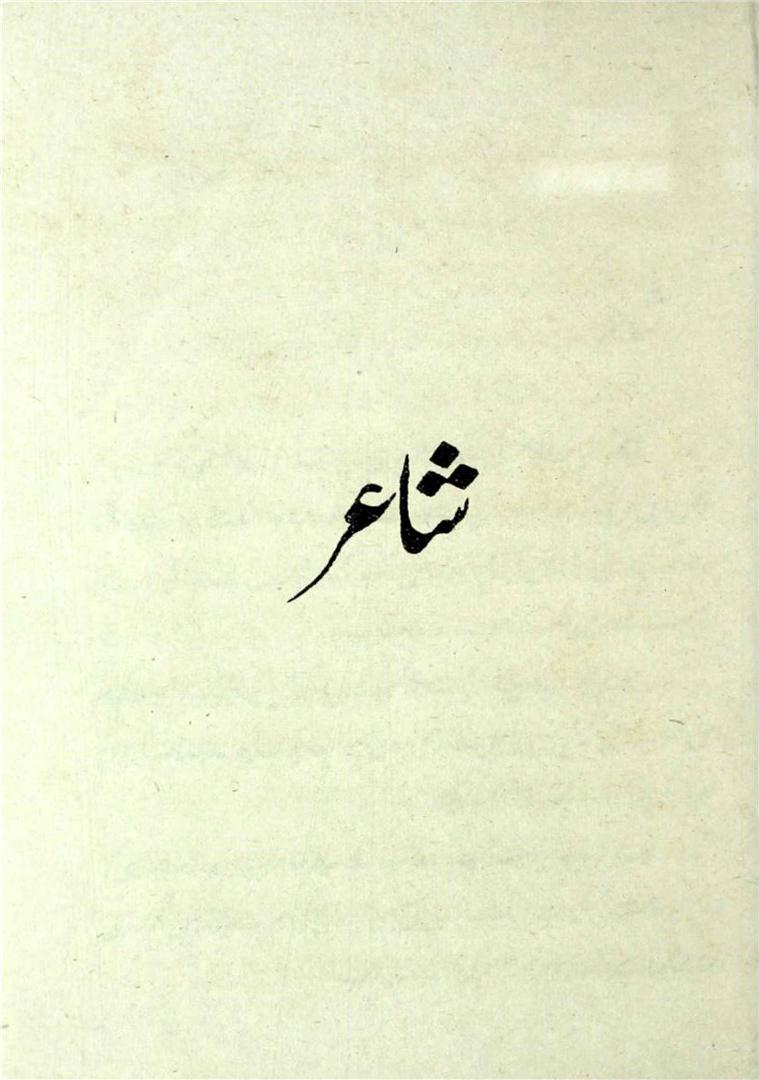 شاعر